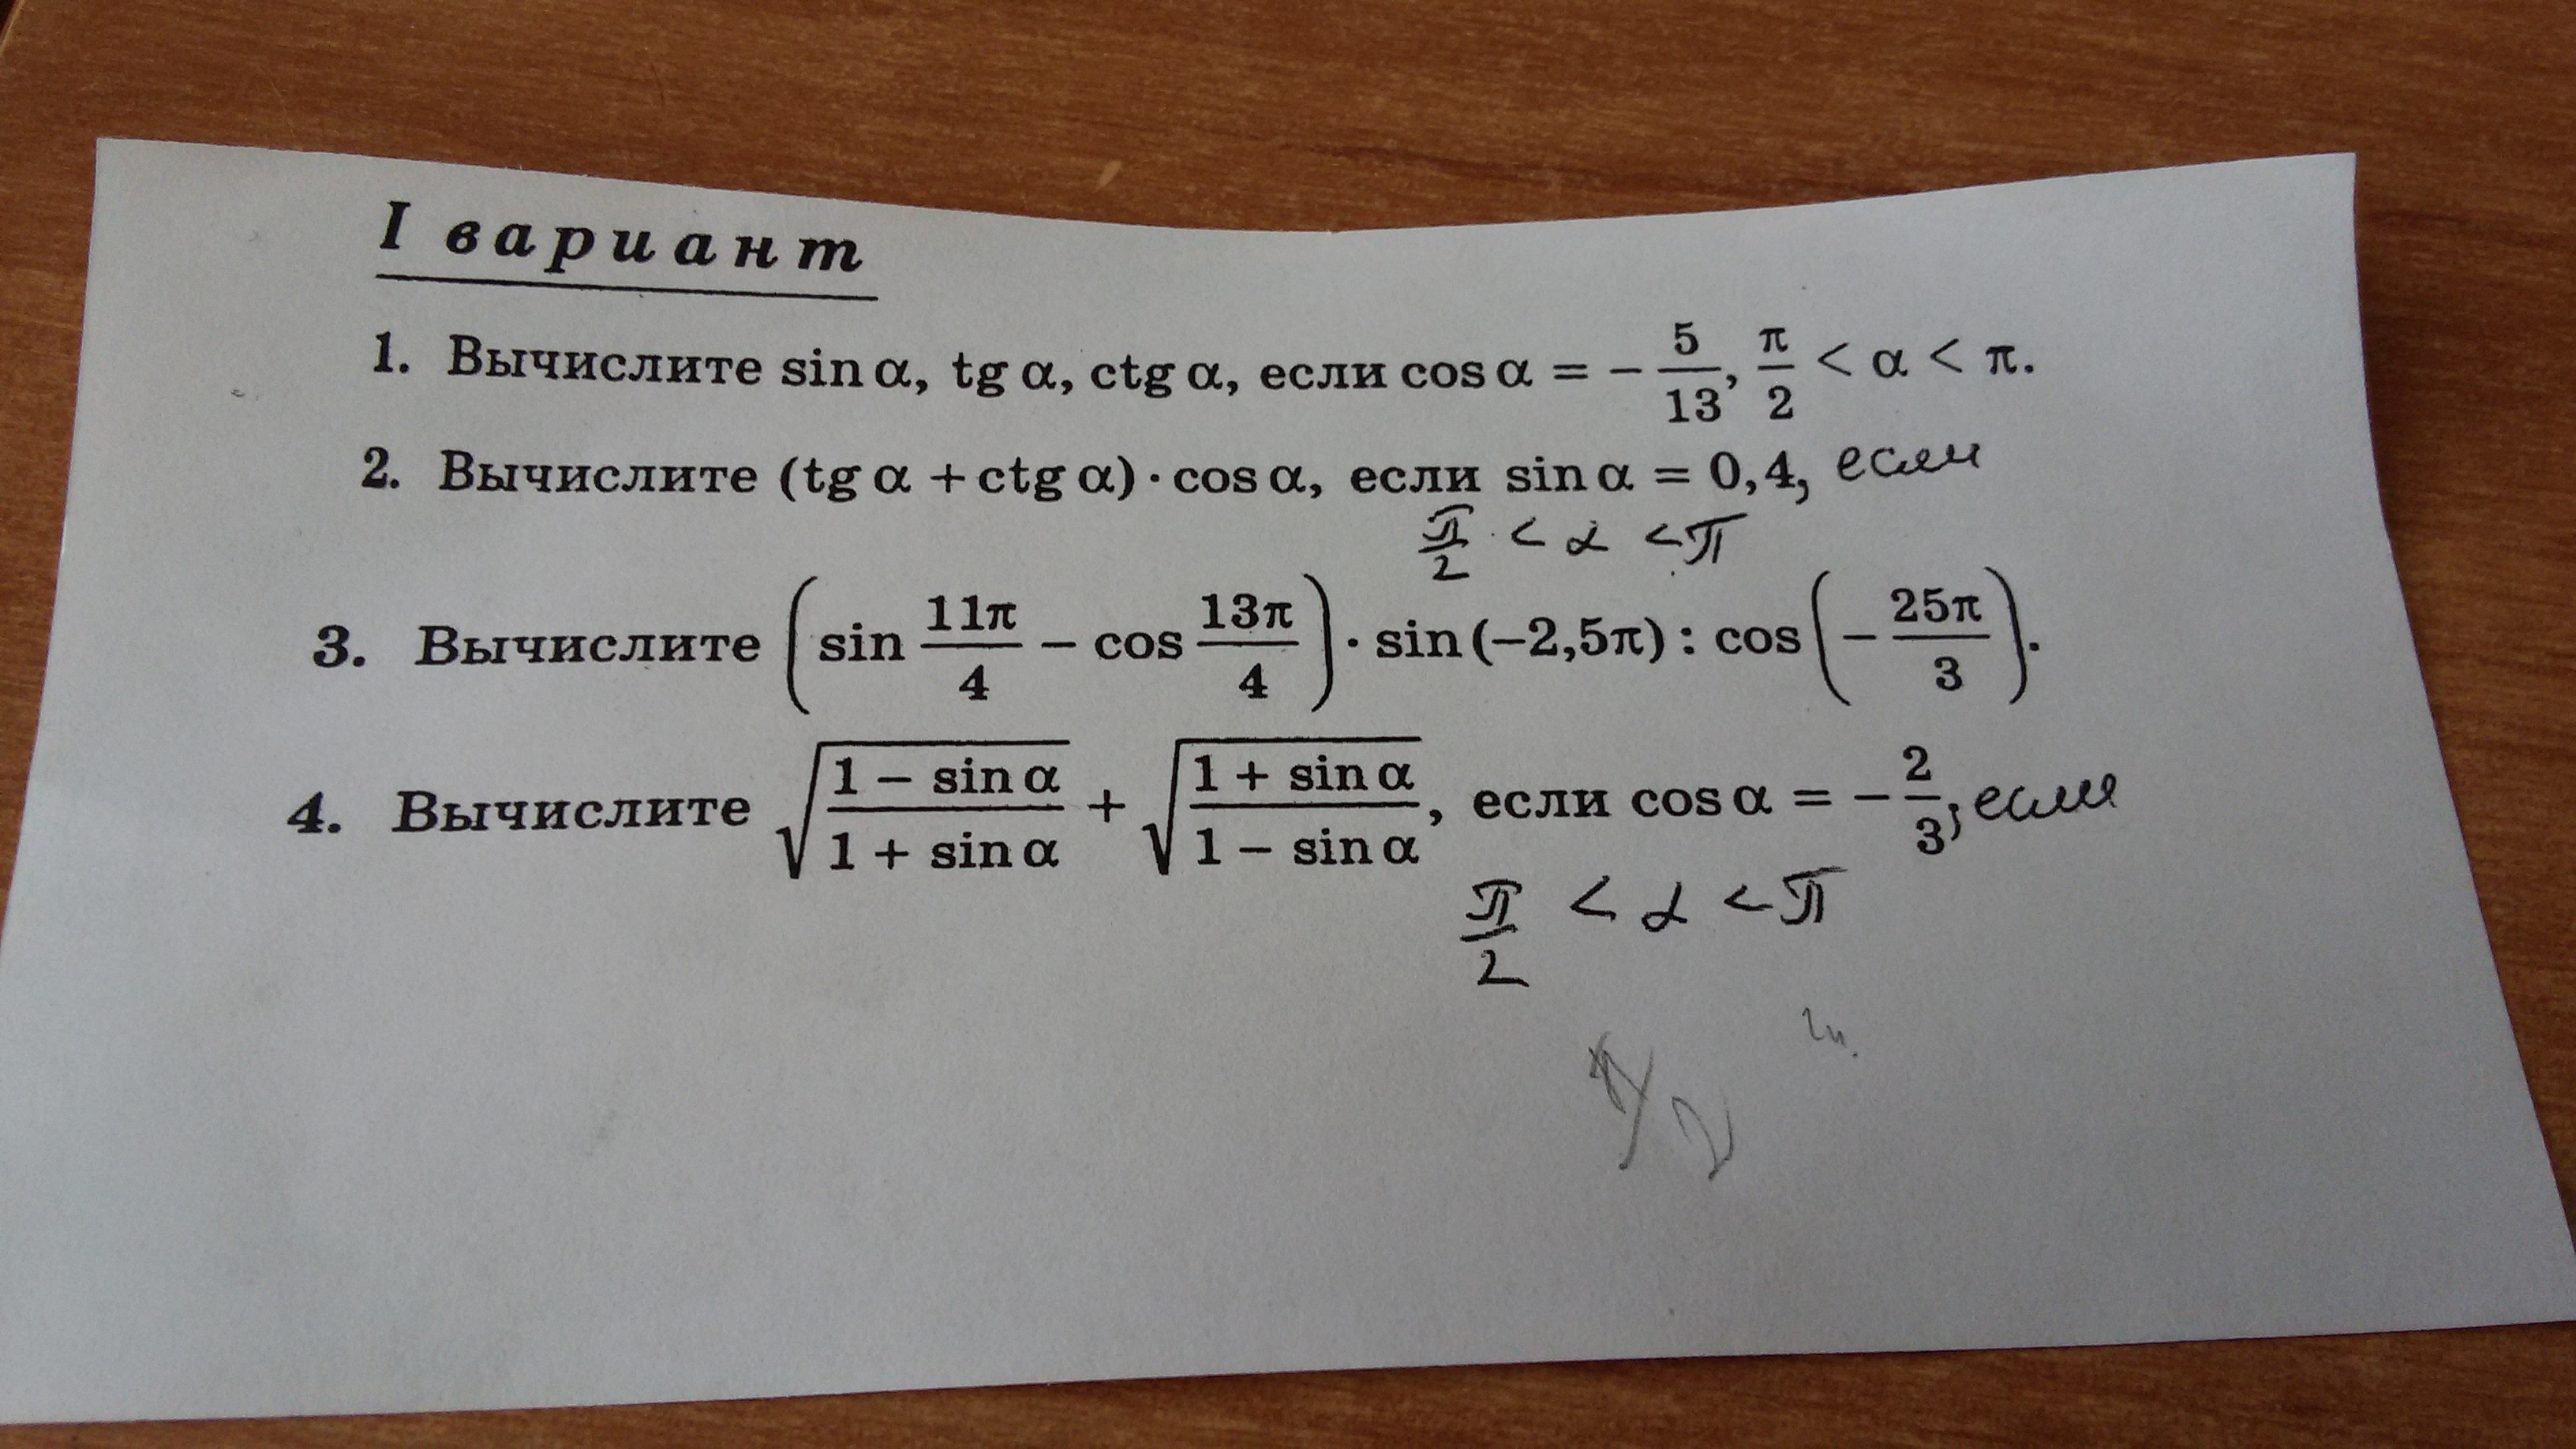 I вариант
1. Вычислите sin α, tg α, ctg α, если cos α = −5/13, π/2 < α < π.
2. Вычислите (tg α + ctg α) · cos α, если sin α = 0,4, если
π/2 < α < π
3. Вычислите (sin 11π/4 − cos 13π/4) · sin (−2,5π) : cos (−25π/3).
4. Вычислите √((1 − sin α)/(1 + sin α)) + √((1 + sin α)/(1 − sin α)), если cos α = −2/3, если
π/2 < α < π